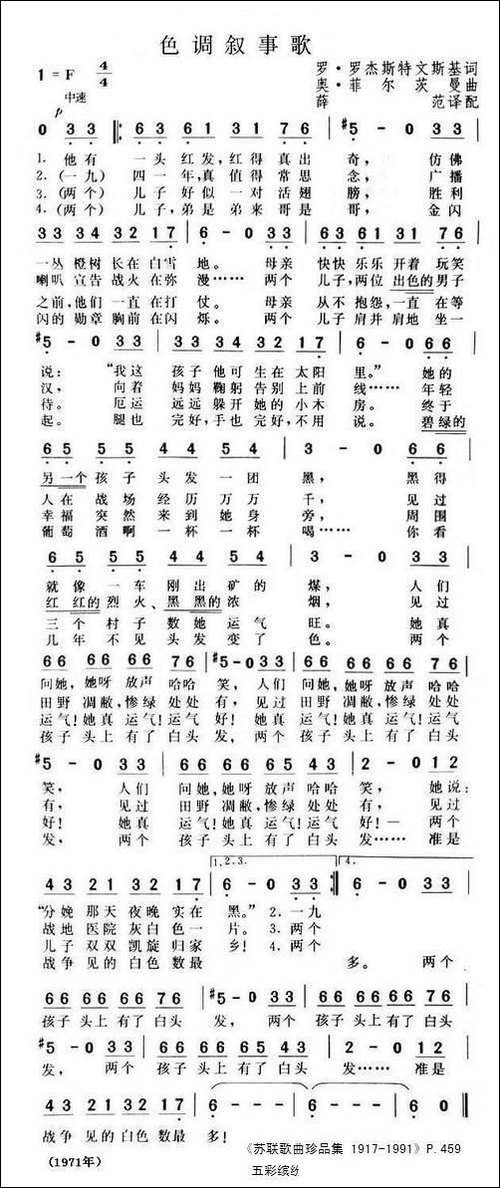 色调叙事歌
1=F 4/4
中速
p
罗·罗杰斯特文斯基词
奥·菲尔茨曼曲
薛范译配
0 33 ‖: 63 61 31 76 | #5 - 0 33 |
1. 他有 一头红发,红得真出 奇, 仿佛
2.(一九) 四一年,真值得常思 念, 广播
3.(两个) 儿子好似一对活翅 膀, 胜利
4.(两个) 儿子,弟是弟来哥是 哥, 金闪
33 34 32 17 | 6 - 0 33 | 63 61 31 76 |
一丛橙树长在白雪 地。 母亲 快快乐乐开着玩笑
喇叭宣告战火在弥 漫…… 两个 儿子,两位出色的男子
之前,他们一直在打 仗。 母亲 从不抱怨,一直在等
闪的勋章胸前在闪 烁。 两个 儿子肩并肩地坐一
#5 - 0 33 | 33 34 32 17 | 6 - 0 66 |
说: “我这 孩子他可生在太阳 里。” 她的
汉, 向着 妈妈鞠躬告别上前 线…… 年轻
待。 厄运 远远躲开她的小木 房。 终于
起。 腿也 完好,手也完好,不用 说。 碧绿的
65 55 45 54 | 3 - 0 66 |
另一个孩子头发一团 黑, 黑得
人在战场经历万万 千, 见过
幸福突然来到她身 旁, 周围
葡萄酒啊一杯一杯 喝…… 你看
65 55 45 54 | 3 - 0 33 |
就像一车刚出矿的 煤, 人们
红红的烈火、黑黑的浓 烟, 见过
三个村子数她运气 旺。 她真
几年不见头发变了 色。 两个
66 66 66 76 | #5 - 0 33 | 66 66 66 76 |
问她,她呀放声哈哈 笑, 人们 问她,她呀放声哈哈
田野凋敝,惨绿处处 有, 见过 田野凋敝,惨绿处处
运气!她真运气!运气 好! 她真 运气!她真运气!运气
孩子头上有了白头 发, 两个 孩子头上有了白头
#5 - 0 33 | 66 66 65 43 | 2 - 0 12 |
笑, 人们 问她,她呀放声哈哈 笑, 她说:
有, 见过 田野凋敝,惨绿处处 有, 见过
好! 她真 运气!她真运气!运气 好!— 两个
发, 两个 孩子头上有了白头 发…… 准是
1.2.3. 4.
43 21 32 17 | 6 - 0 33 :‖ 6 - 0 33 |
“分娩那天夜晚实在 黑。” 2.一九
战地医院灰白色一 片。 3.两个
儿子双双凯旋归家 乡! 4.两个
战争见的白色数最 多。 两个
66 66 66 76 | #5 - 0 33 | 66 66 66 76 |
孩子头上有了白头 发, 两个 孩子头上有了白头
#5 - 0 33 | 66 66 65 43 | 2 - 0 12 |
发, 两个 孩子头上有了白头 发…… 准是
43 21 32 17 | 6 - - - | 6 - - - | 6 0 0 0 ‖
战争见的白色数最 多!
(1971年)
《苏联歌曲珍品集 1917-1991》P.459
五彩缤纷